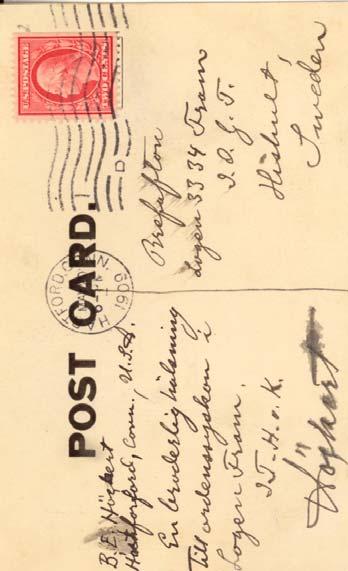 POST CARD.
U.S. POSTAGE
TWO CENTS
HARTFORD, CONN.
1909
D
B. E. Höglert
Hartforford, Conn., U.S.A.
En broderlig hälsning
till ordenssyskon i
Logen Fram.
I T. H. o. K.
Höglert
Brefafton
Logen 3334 Fram
I. O. G. T.
Hishult
Sweden